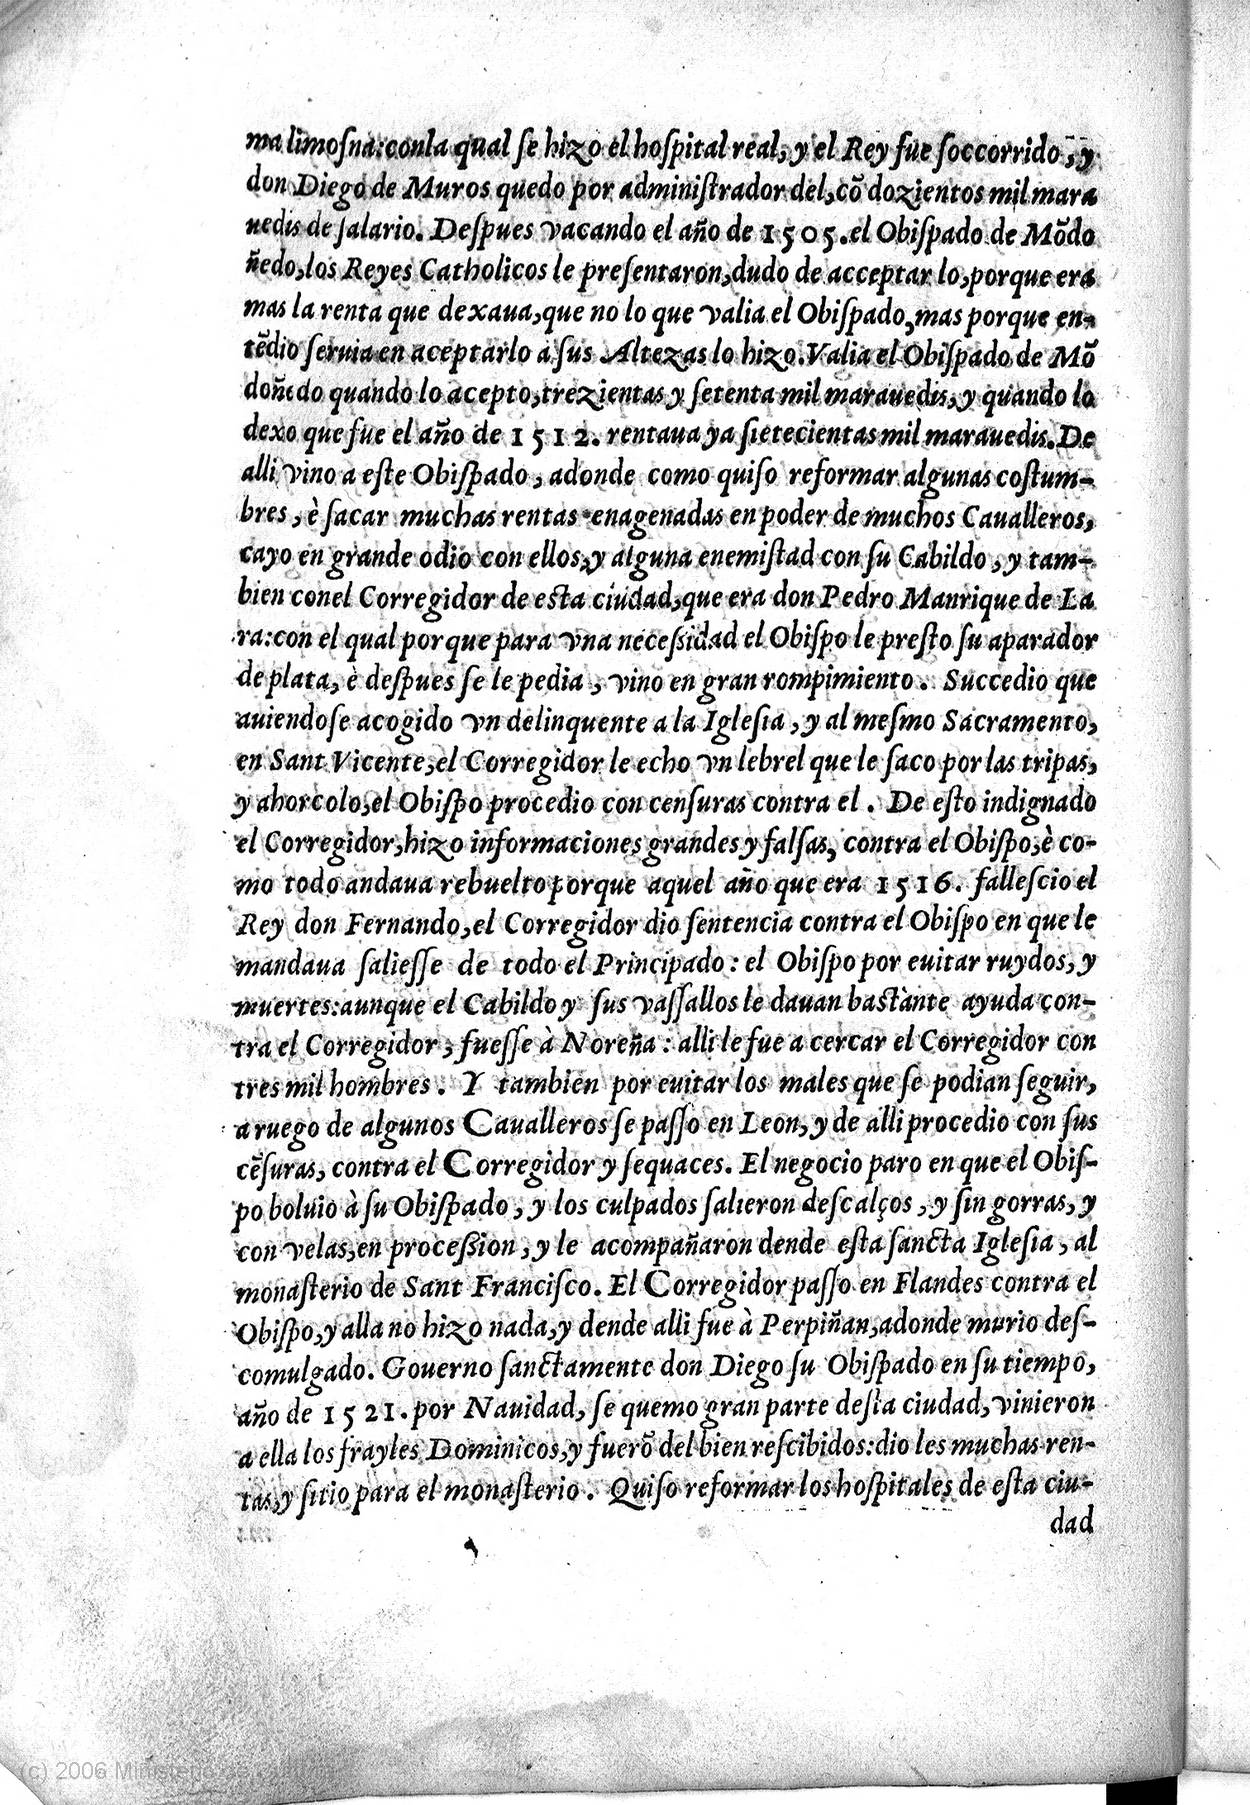 ma limoſna:conla qual ſe hizo el hoſpital real, y el Rey fue ſoccorrido, y
don Diego de Muros quedo por adminiſtrador del,cõ dozientos mil mara
uedis de ſalario. Deſpues vacando el año de 1505.el Obiſpado de Mõdo
ñedo,los Reyes Catholicos le preſentaron,dudo de acceptar lo,porque era
mas la renta que dexaua,que no lo que valia el Obiſpado,mas porque en-
tẽdio ſeruia en aceptarlo a ſus Altezas lo hizo.Valia el Obiſpado de Mõ
doñedo quando lo acepto,trezientas y ſetenta mil marauedis,y quando lo
dexo que fue el año de 1512. rentaua ya ſietecientas mil marauedis.De
alli vino a eſte Obiſpado, adonde como quiſo reformar algunas coſtum-
bres, è ſacar muchas rentas enagenadas en poder de muchos Caualleros,
cayo en grande odio con ellos,y alguna enemiſtad con ſu Cabildo, y tam-
bien conel Corregidor de eſta ciudad,que era don Pedro Manrique de La
ra:con el qual porque para vna neceſsidad el Obiſpo le preſto ſu aparador
de plata, è deſpues ſe le pedia, vino en gran rompimiento. Succedio que
auiendoſe acogido vn delinquente a la Igleſia, y al meſmo Sacramento,
en Sant Vicente,el Corregidor le echo vn lebrel que le ſaco por las tripas,
y ahorcolo,el Obiſpo procedio con cenſuras contra el. De eſto indignado
el Corregidor,hizo informaciones grandes y falſas, contra el Obiſpo,è co-
mo todo andaua rebuelto porque aquel año que era 1516. falleſcio el
Rey don Fernando,el Corregidor dio ſentencia contra el Obiſpo en que le
mandaua ſalieſſe de todo el Principado: el Obiſpo por euitar ruydos, y
muertes:aunque el Cabildo y ſus vaſſallos le dauan baſtànte ayuda con-
tra el Corregidor, fueſſe à Noreña: alli le fue a cercar el Corregidor con
tres mil hombres. Y tambien por euitar los males que ſe podian ſeguir,
a ruego de algunos Caualleros ſe paſſo en Leon, y de alli procedio con ſus
cẽſuras, contra el Corregidor y ſequaces. El negocio paro en que el Obiſ-
po boluio à ſu Obiſpado, y los culpados ſalieron deſcalços, y ſin gorras, y
con velas,en proceſsion, y le acompañaron dende eſta ſancta Igleſia, al
monaſterio de Sant Franciſco. El Corregidor paſſo en Flandes contra el
Obiſpo,y alla no hizo nada,y dende alli fue à Perpiñan,adonde murio deſ-
comulgado. Gouerno ſanctamente don Diego ſu Obiſpado en ſu tiempo,
año de 1521. por Nauidad, ſe quemo gran parte deſta ciudad, vinieron
a ella los frayles Dominicos,y fuerõ del bien reſcibidos:dio les muchas ren-
tas,y ſitio para el monaſterio. Quiſo reformar los hoſpitales de eſta ciu-
dad
(c) 2006 Ministerio de Cultura